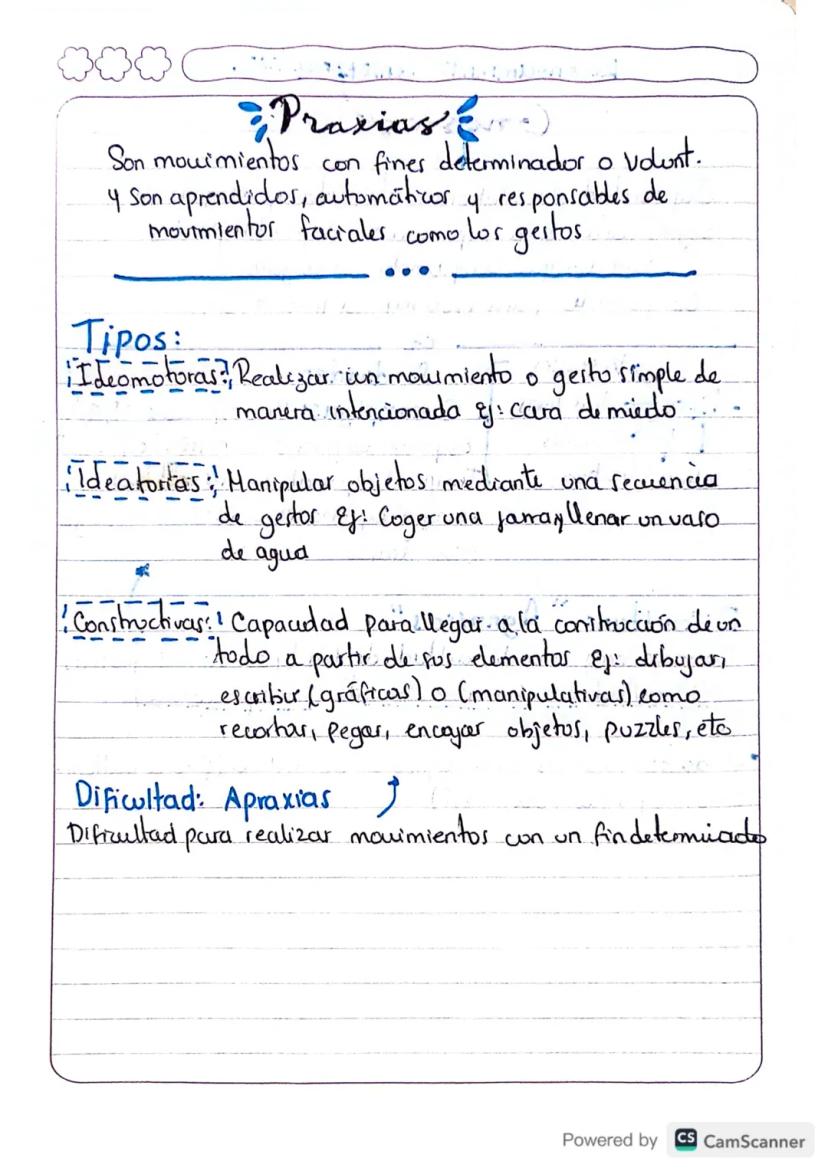 Praxias
Son movimientos con fines determinador o Volunt.
y Son aprendidos, automáticos y responsables de
movimientos faciales como los gestos
Tipos:
Ideomotoras: Realizar un movimiento o gesto simple de
manera intencionada Ej: cara de miedo
Ideatorias: Manipular objetos mediante una secuencia
de gestos Ej: Coger una jarra y llenar un vaso
de agua
Constructivas: Capacidad para llegar a la construcción de un
todo a partir de sus elementos Ej: dibujar,
escribir (gráficas) o (manipulativas) como
recortar, pegar, encajar objetos, puzzles, etc
Dificultad: Apraxias
Dificultad para realizar movimientos con un fin determinado
Powered by CS CamScanner